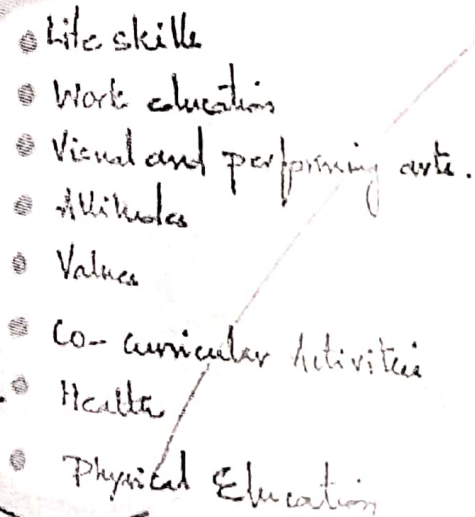 Life skills
Work education
Visual and performing arts.
Attitudes
Values
Co-curricular Activities
Health
Physical Education